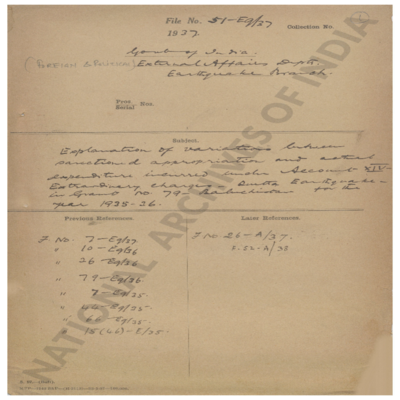 File No. 51-Eq/37
Collection No.
1937
Govt of India.
(FOREIGN & POLITICAL) External Affairs Deptt.
Earthquake Branch.
Prog.
Serial Nos.
Subject.
Explanation of variations between
sanctioned appropriation and actual
expenditure incurred under Account XIV-
Extraordinary charges, Quetta Earthquake-
in Grant No 79 Baluchistan for the
year 1935-36.
Previous References.
Later References.
F No. 7-Eq/36
" 10-Eq/36
" 36-Eq/36
" 79-Eq/36.
" 7-Eq/35
" 44-Eq/35
" 66-Eq/35
" 15(46)-E/35.
F No 26-A/37.
52-A/38
NATIONAL ARCHIVES OF INDIA